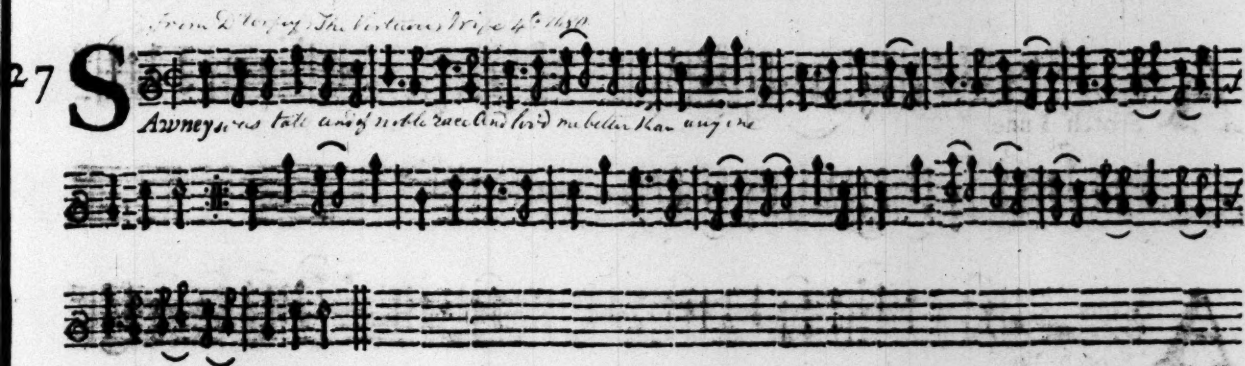 From D'Urfey's The Virtuous Wife 4to 1680.
27
SAwney was tall and of noble race And lov'd me better than any one